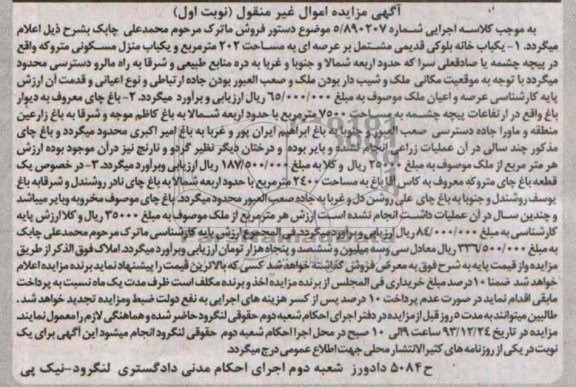 آگهی مزایده اموال غیر منقول (نوبت اول)
به موجب کلاسه اجرایی شماره 5/890207 موضوع دستور فروش ماترک مرحوم محمدعلی چابک بشرح ذیل اعلام
میگردد. 1- یکباب خانه بلوکی قدیمی مشتمل بر عرصه ای به مساحت 202 مترمربع و یکباب منزل مسکونی متروکه واقع
در پیچه چشمه یا صادقعلی سرا که حدود اربعه شمالا و جنوبا و غربا به دره منابع طبیعی و شرقا به راه مالرو دسترسی محدود
میگردد با توجه به موقعیت مکانی ملک و شیب دار بودن ملک و صعب العبور بودن جاده ارتباطی و نوع اعیانی و قدمت آن ارزش
پایه کارشناسی عرصه و اعیان ملک موصوف به مبلغ 65/000/000 ریال ارزیابی و برآورد میگردد. 2- باغ چای معروف به دیوار
باغ واقع در ارتفاعات پیچه چشمه به مساحت 7500 مترمربع با حدود اربعه شمالا به باغ کاظم موجه و شرقا به باغ زارعین
منطقه و ماورا جاده دسترسی صعب العبور جنوبا به باغ ابراهیم ایران پور و غربا به باغ امیر اکبری محدود میگردد و باغ چای
مذکور چند سالی در آن عملیات زراعی انجام نشده و بایر بوده و درختان دیگر نظیر گردو و نارنج نیز درآن موجود بوده ارزش
هر متر مربع از ملک موصوف به مبلغ 25000 ریال و کلا به مبلغ 187/500/000 ریال ارزیابی وبرآورد میگردد. 3- در خصوص یک
قطعه باغ چای متروکه معروف به کاس آقا باغ به مساحت 2400 مترمربع با حدود اربعه شمالا به باغ چای نادر روشندل و شرقا به باغ
یوسف روشندل و جنوبا به باغ چای علی روشن دل و غربا به جاده صعب العبور محدود میگردد. باغ چای موصوف مخروبه وبایر میباشد
و چندین سال در آن عملیات داشت انجام نشده است. ارزش هر مترمربع از ملک موصوف به مبلغ 35000 ریال و کلا ارزش پایه
کارشناسی به مبلغ 84/000/000 ریال ارزیابی وبرآورد میگردد. فی المجموع ارزش پایه کارشناسی ماترک مرحوم محمدعلی چابک
به مبلغ 336/500/000 ریال معادل سی وسه میلیون و ششصد و پنجاه هزار تومان ارزیابی وبرآورد میگردد. املاک فوق الذکر از طریق
مزایده واز قیمت پایه به شرح فوق به معرض فروش گذاشته خواهد شد کسی که بالاترین قیمت را پیشنهاد نماید برنده مزایده اعلام
خواهد شد ضمنا 10 درصد مبلغ خریداری فی المجلس از برنده مزایده اخذ و برنده مکلف است ظرف مدت یک ماه نسبت به پرداخت
مابقی اقدام نماید در صورت عدم پرداخت 10 درصد پس از کسر هزینه های اجرایی به نفع دولت ضبط ومزایده تجدید خواهد شد.
طالبین میتوانند به مدت 5 روز قبل از مزایده در دفتر اجرای احکام شعبه دوم حقوقی لنگرود حاضر شده و هماهنگی لازم را معمول نمایند.
مزایده در تاریخ 93/12/24 ساعت 9 الی 10 صبح در محل اجرا احکام شعبه دوم حقوقی لنگرود انجام میشود این آگهی برای یک
نوبت در یکی از روزنامه های کثیرالانتشار محلی جهت اطلاع عمومی درج میگردد.
ح 5084 دادورز شعبه دوم اجرای احکام مدنی دادگستری لنگرود-نیک پی